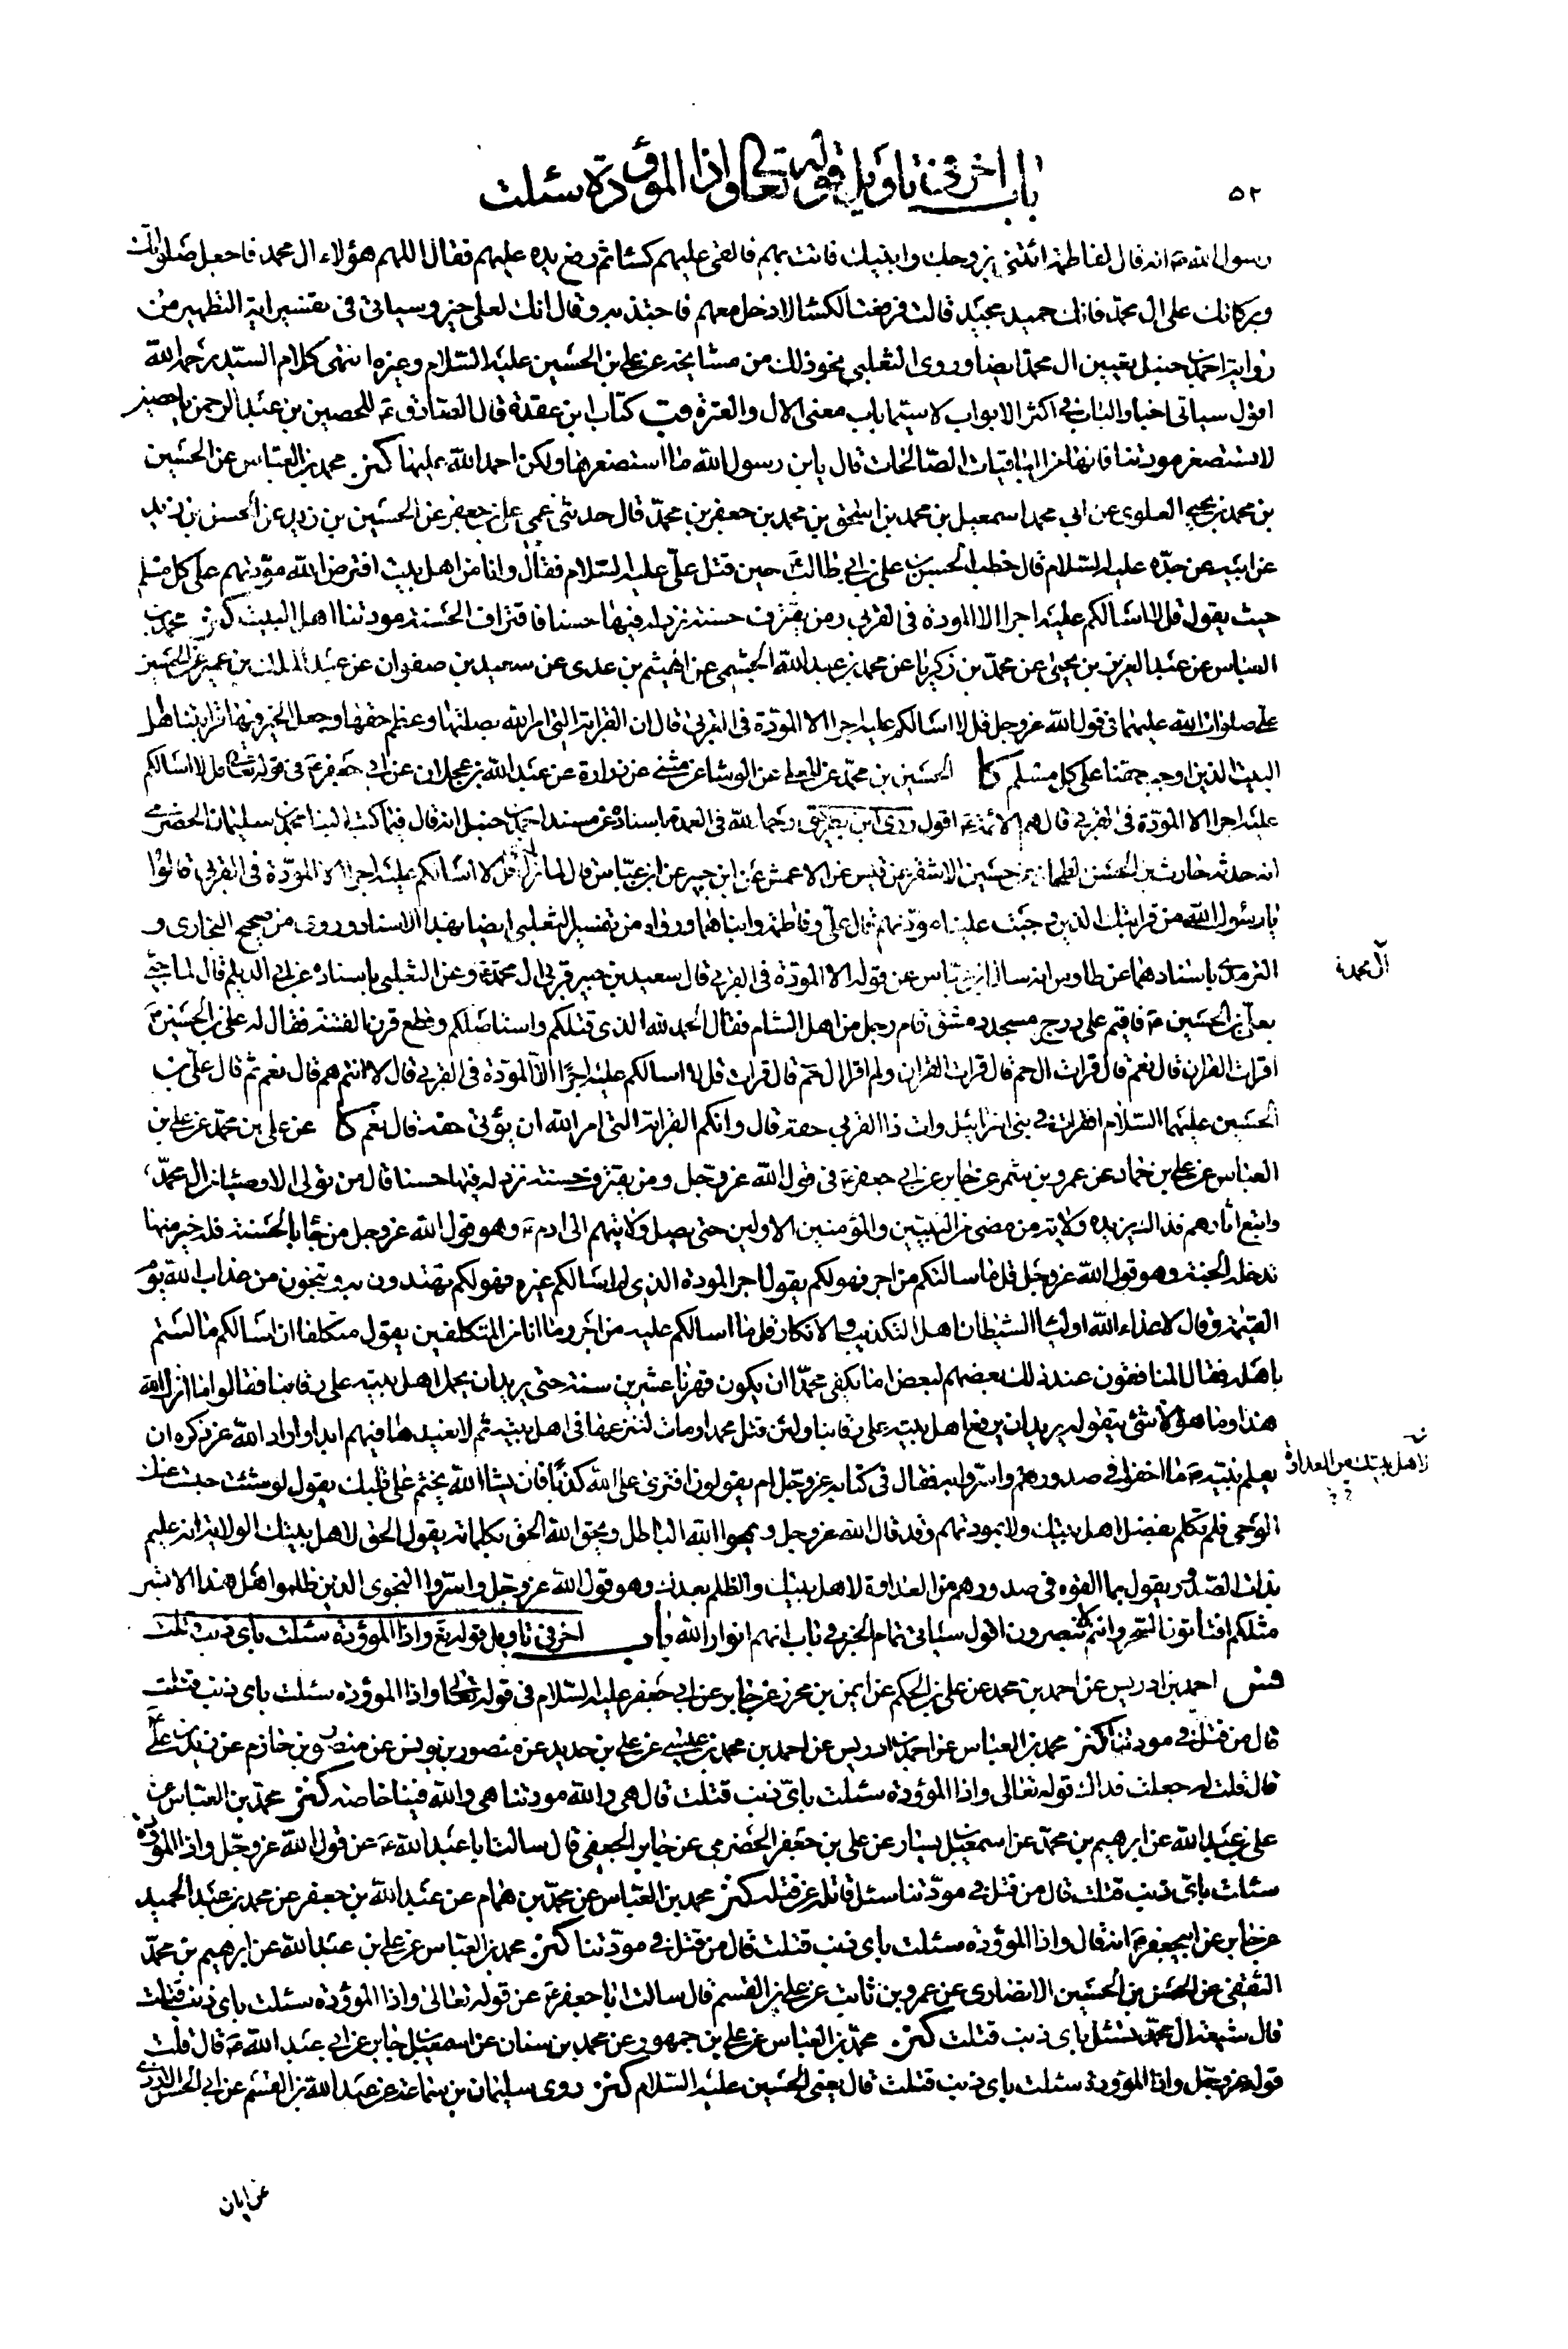 باب اخر فى تاويل قوله تعالى واذا الموؤدة سئلت
٥٢
رسول الله ص انه قال لفاطمة ائتينى بزوجك وابنيك فاتت بهم فالقى عليهم كساء ثم رفع يده عليهم فقال اللهم هؤلاء ال محمد فاجعل صلواتك
وبركاتك على ال محمد فانك حميد مجيد قالت فرفعت الكساء لادخل معهم فاجتذبه وقال انك لعلى خير وسياتى فى تفسير اية التطهير من
رواية احمد بن حنبل تعيين ال محمد ايضا وروى الثعلبى نحو ذلك من مشايخه عن على بن الحسين عليه السلام وغيره انتهى كلام السيد رحمه الله
اقول سياتى اخبار الباب فى اكثر الابواب لا سيما باب معنى الال والعترة قب كتاب ابن عقدة قال الصادق ع للحصين بن عبد الرحمن يا حصين
لا تستصغر مودتنا فانها من الباقيات الصالحات قال يابن رسول الله ما استصغرها ولكن احمد الله عليها كنز محمد بن العباس عن الحسين
بن محمد بن يحيى العلوى عن ابى محمد اسمعيل بن محمد بن اسحق بن محمد بن جعفر بن محمد قال حدثنى عمى على بن جعفر عن الحسين بن زيد عن الحسن بن زيد
عن ابيه عن جده عليه السلام قال خطب الحسن بن على بن ابى طالب ع حين قتل على عليه السلام فقال وانا من اهل بيت افترض الله مودتهم على كل مسلم
حيث يقول قل لا اسالكم عليه اجرا الا المودة فى القربى ومن يقترف حسنة نزد له فيها حسنا فاقتراف الحسنة مودتنا اهل البيت كنز محمد بن
العباس عن عبد العزيز بن يحيى عن محمد بن زكريا عن محمد بن عبد الله الجشمى عن الهيثم بن عدى عن سعيد بن صفوان عن عبد الملك بن عمير عن الحسين بن
على صلوات الله عليهما فى قول الله عز وجل قل لا اسالكم عليه اجرا الا المودة فى القربى قال ان القرابة التى امر الله بصلتها وعظم حقها وجعل الخير فيها قرابتنا اهل
البيت الذين اوجب حقنا على كل مسلم كا الحسين بن محمد عن المعلى عن الوشا عن مثنى عن زرارة عن عبد الله بن عجلان عن ابى جعفر ع فى قوله تعالى قل لا اسالكم
عليه اجرا الا المودة فى القربى قال هم الائمة ع اقول روى ابن بطريق رحمه الله فى العمدة باسناده عن مسند احمد بن حنبل انه قال فيما كتب الينا محمد بن سليمان الحضرمى
انه حدثه حارث بن الحسن الطحان عن حسين الاشقر عن قيس عن الاعمش عن ابن جبير عن ابن عباس قال لما نزل قل لا اسالكم عليه اجرا الا المودة فى القربى قالوا
يا رسول الله من قرابتك الذين وجبت علينا مودتهم قال على وفاطمة وابناهما ورواه من تفسير الثعلبى ايضا بهذا الاسناد وروى من صحيح البخارى و
الترمذى باسنادهما عن طاوس انه سال ابن عباس عن قوله الا المودة فى القربى قال سعيد بن جبير قربى ال محمد ع وعن الثعلبى باسناده عن ابى الديلم قال لما جئ
ال محمد ع
بعلى بن الحسين ع فاقيم على درج مسجد دمشق قام رجل من اهل الشام فقال الحمد لله الذى قتلكم واستاصلكم وقطع قرن الفتنة فقال له على بن الحسين ع
اقرات القران قال نعم قال قرات ال حم قال قرات القران ولم اقرا ال حم قال قرات قل لا اسالكم عليه اجرا الا المودة فى القربى قال لانتم هم قال نعم ثم قال على بن
الحسين عليهما السلام اقرات فى بنى اسرائيل وات ذا القربى حقه قال وانكم القرابة التى امر الله ان يؤتى حقه قال نعم كا عن على بن محمد عن على بن
العباس عن على بن حماد عن عمرو بن شمر عن جابر عن ابى جعفر ع فى قول الله عز وجل ومن يقترف حسنة نزد له فيها حسنا قال من تولى الاوصياء من ال محمد
واتبع اثارهم فذاك يزيده ولاية من مضى من النبيين والمؤمنين الاولين حتى يصل ولايتهم الى ادم ع وهو قول الله عز وجل من جاء بالحسنة فله خير منها
تدخله الجنة وهو قول الله عز وجل قل ما سالتكم من اجر فهو لكم يقول اجر المودة الذى لم اسالكم غيره فهو لكم تهتدون به وتنجون من عذاب الله يوم
القيمة وقال لاعداء الله اولياء الشيطان اهل التكذيب والانكار قل ما اسالكم عليه من اجر وما انا من المتكلفين يقول متكلفا ان اسالكم ما لستم
باهله فقال المنافقون عند ذلك بعضهم لبعض اما يكفى محمدا ان يكون قهرنا عشرين سنة حتى يريد ان يحمل اهل بيته على رقابنا فقالوا ما انزل الله
هذا وما هو الا شئ يتقوله يريد ان يرفع اهل بيته على رقابنا ولئن قتل محمد او مات لننزعها فى اهل بيته ثم لا نعيدها فيهم ابدا واراد الله عز ذكره ان
يعلم نبيه ص ما اخفوا فى صدورهم واسروا به فقال فى كتابه عز وجل ام يقولون افترى على الله كذبا فان يشا الله يختم على قلبك يقول لو شئت حبست عنك
لاهل بيتك من العداوة
الوحى فلم تكلم بفضل اهل بيتك ولا بمودتهم وقد قال الله عز وجل ويمحوا الله الباطل ويحق الله الحق بكلماته يقول الحق لاهل بيتك الولاية انه عليم
بذات الصدور يقول بما القوه فى صدورهم من العداوة لاهل بيتك والظلم بعدك وهو قول الله عز وجل واسروا النجوى الذين ظلموا هل هذا الا بشر
مثلكم افتاتون السحر وانتم تبصرون اقول سياتى تمام الخبر فى باب انهم انوار الله باب اخر فى تاويل قوله تع واذا الموؤدة سئلت باى ذنب قتلت
فس احمد بن ادريس عن احمد بن محمد عن على بن الحكم عن ايمن بن محرز عن جابر عن ابى جعفر عليه السلام فى قوله تعالى واذا الموؤدة سئلت باى ذنب قتلت
قال من قتل فى مودتنا كنز محمد بن العباس عن احمد بن ادريس عن احمد بن محمد بن عيسى عن على بن حديد عن منصور بن يونس عن منصور بن حازم عن زيد بن على ع
قال قلت له جعلت فداك قوله تعالى واذا الموؤدة سئلت باى ذنب قتلت قال هى والله مودتنا هى والله فينا خاصة كنز محمد بن العباس عن
على بن عبد الله عن ابرهيم بن محمد عن اسمعيل بن يسار عن على بن جعفر الحضرمى عن جابر الجعفى قال سالت ابا عبد الله ع عن قول الله عز وجل واذا الموؤدة
سئلت باى ذنب قتلت قال من قتل فى مودتنا سئل قاتله عن قتله كنز محمد بن العباس عن محمد بن همام عن عبد الله بن جعفر عن محمد بن عبد الحميد
عن جابر عن ابيجعفر ع انه قال واذا الموؤدة سئلت باى ذنب قتلت قال من قتل فى مودتنا كنز محمد بن العباس عن على بن عبد الله عن ابرهيم بن محمد
الثقفى عن الحسن بن الحسين الانصارى عن عمرو بن ثابت عن على بن القسم قال سالت ابا جعفر ع عن قوله تعالى واذا الموؤدة سئلت باى ذنب قتلت
قال شيعة ال محمد تسئل باى ذنب قتلت كنز محمد بن العباس عن على بن جمهور عن محمد بن سنان عن اسمعيل بن جابر عن ابى عبد الله ع قال قلت
قوله عز وجل واذا الموؤدة سئلت باى ذنب قتلت قال يعنى الحسين عليه السلام كنز روى سليمان بن سماعة عن عبد الله بن القسم عن ابى الحسن الازدى
عن ابان